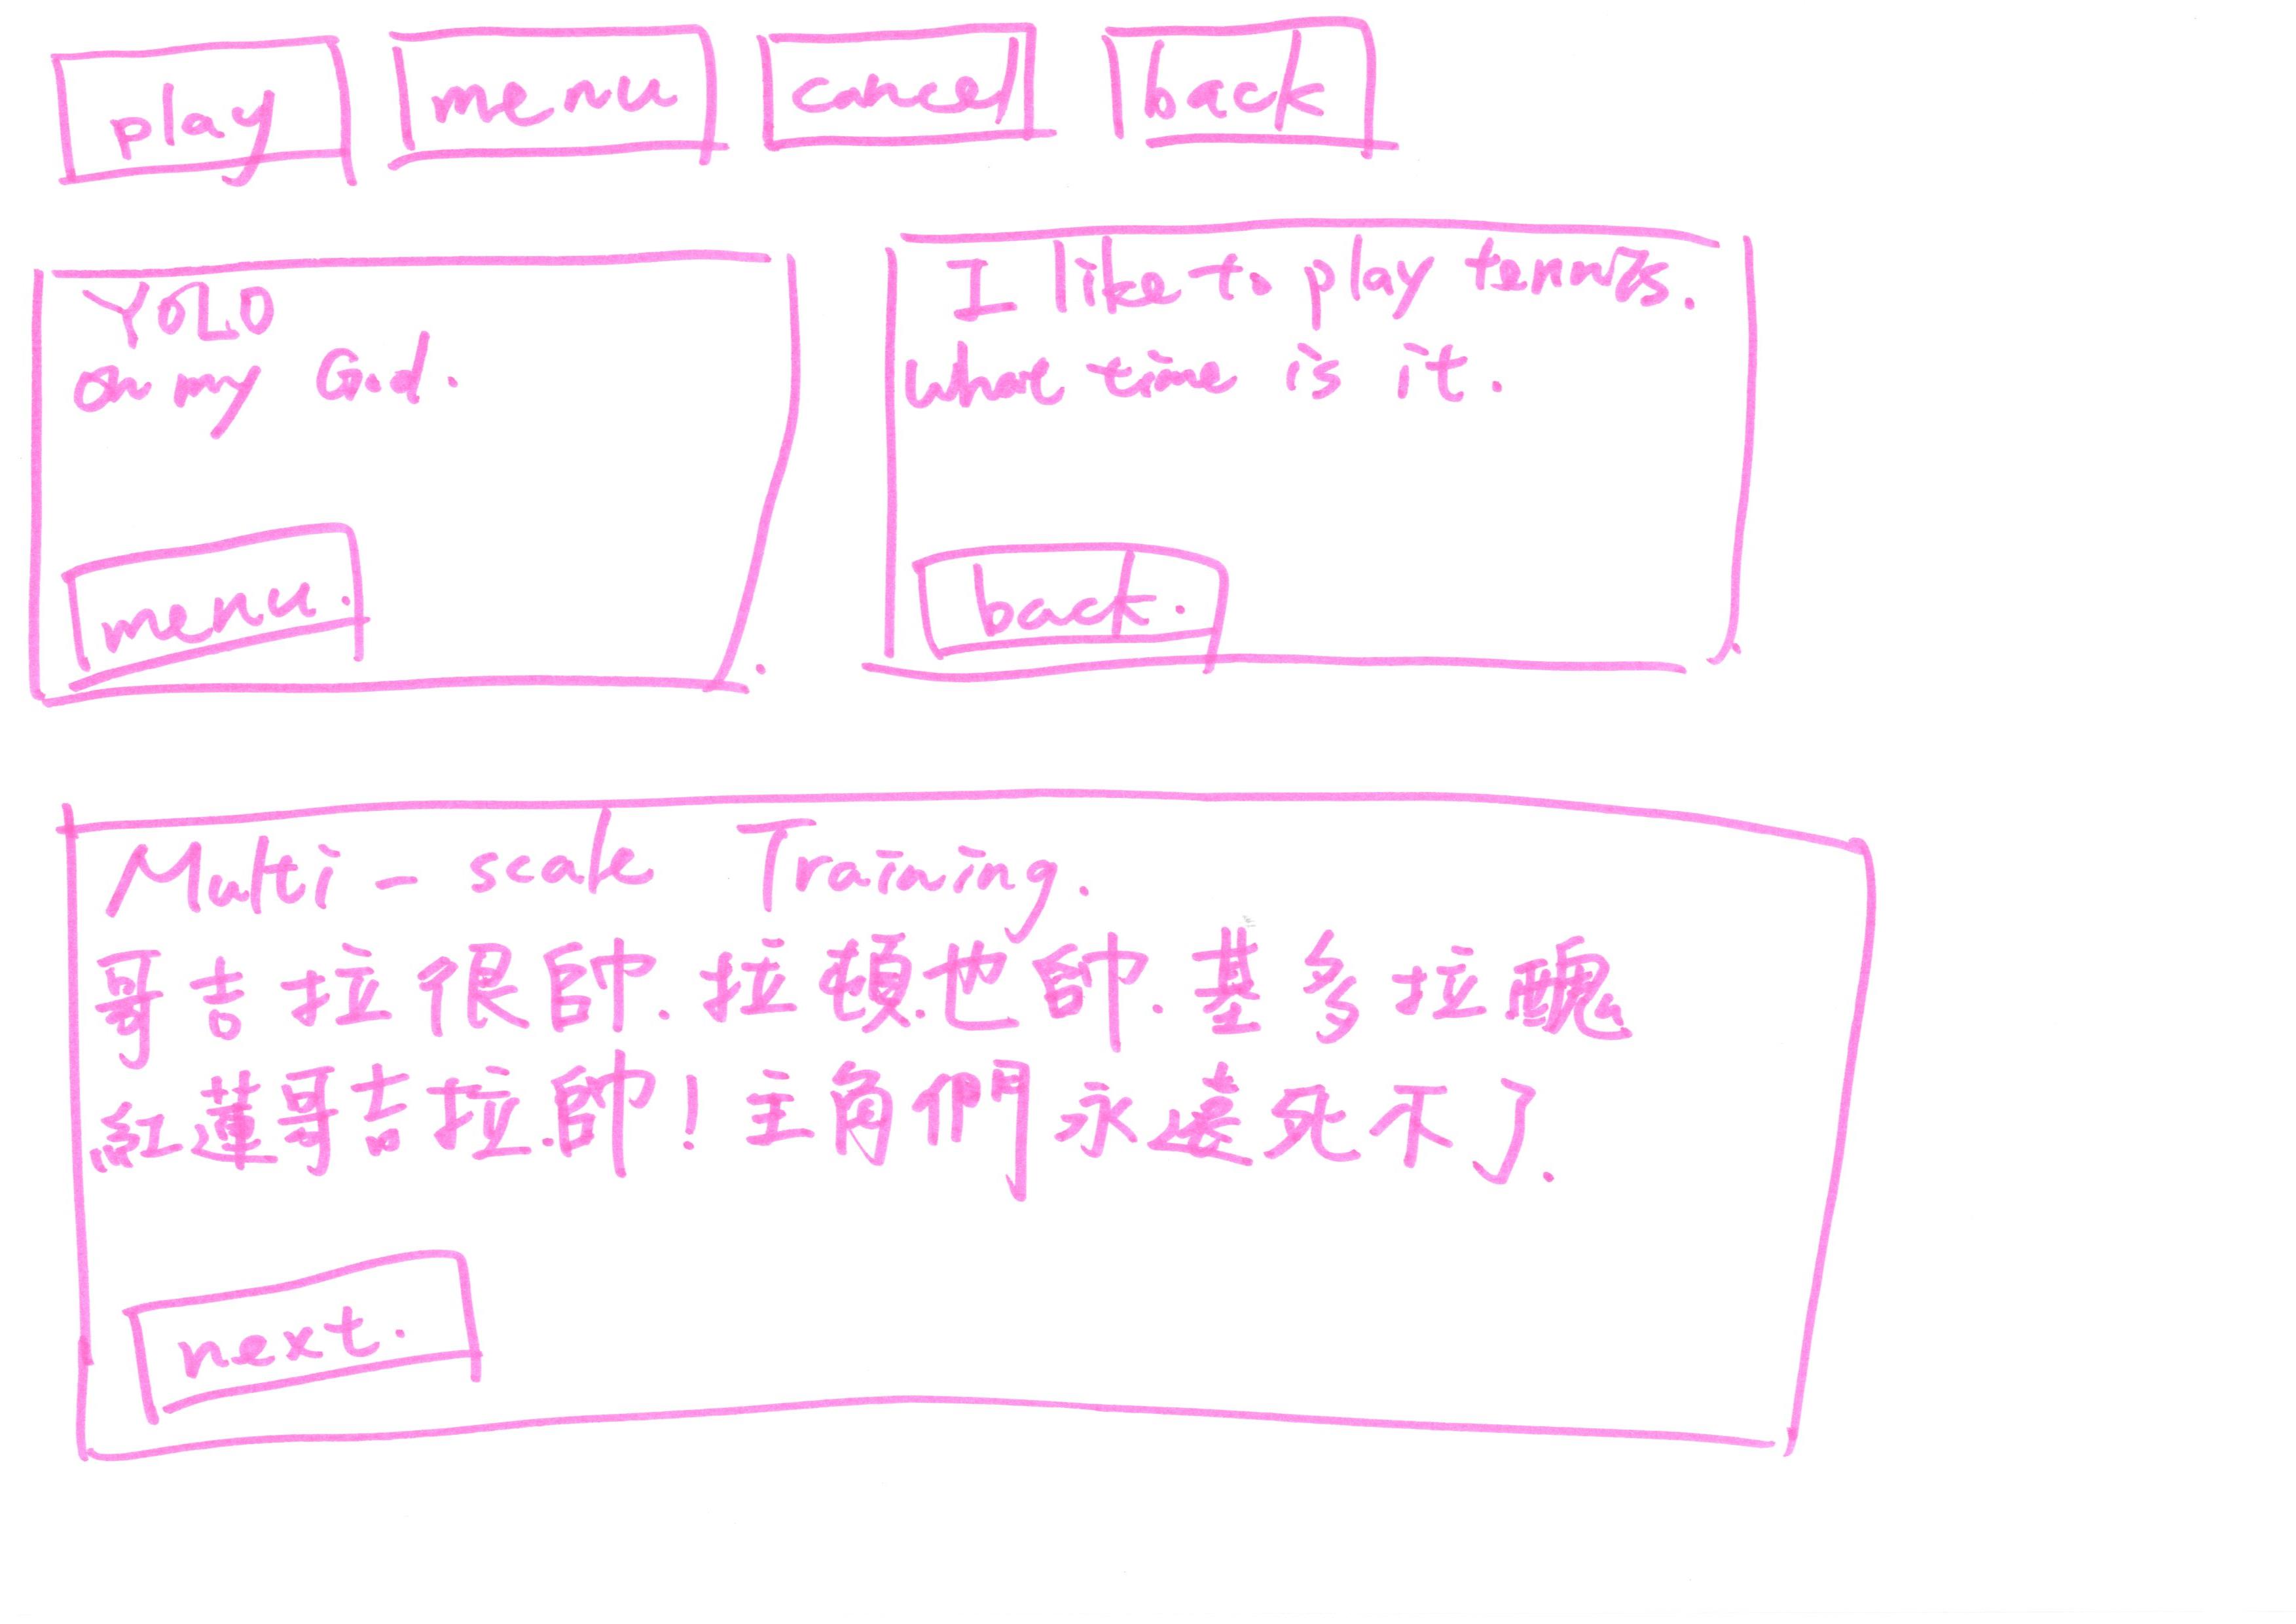 play menu cancel back
YOLO
oh my God.
menu.
I like to play tennis.
what time is it.
back.
Multi-scale Training.
哥吉拉很帥.拉頓也帥.基多拉醜
紅蓮哥吉拉帥!主角們永遠死不了.
next.